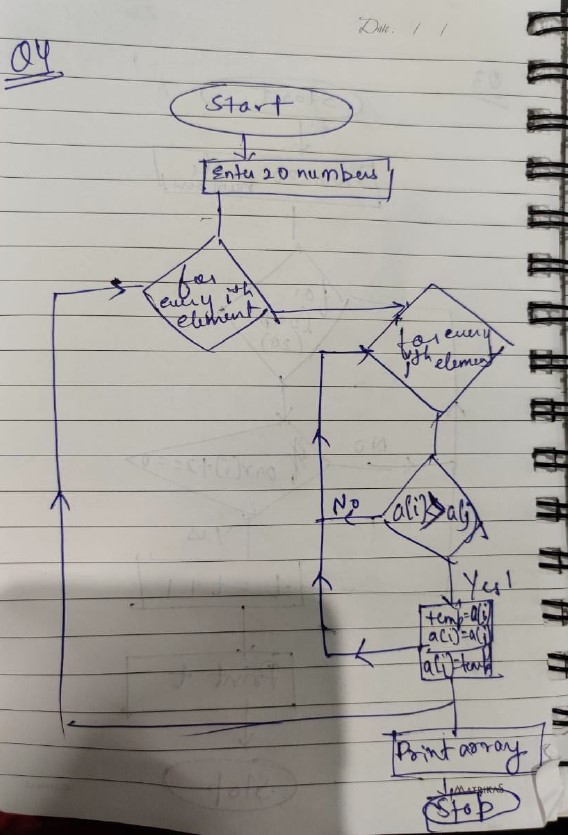 Date. / /
Q4
Start
Enter 20 numbers
for
every ith
element
for every
jth element
a[i]>a[j]
No
Yes
temp=a[i]
a[i]=a[j]
a[j]=temp
Print array
MATRIKAS
Stop